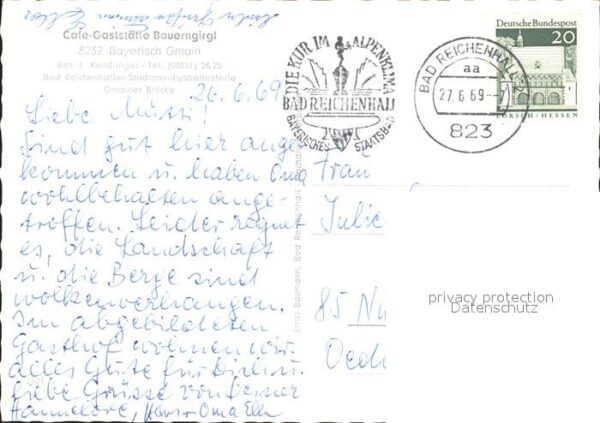 Cafe-Gaststätte Bauerngirgl
8232 Bayerisch Gmain
Bes. E. Kendlinger - Tel. (08651) 2625
Bad Reichenhaller Stadtomnibushaltestelle
Gmainer Brücke
26.6.69
Liebe Mutti!
Sind gut hier ange-
kommen u. haben Oma
wohlbehalten ange-
troffen. Leider regnet
es, die Landschaft
u. die Berge sind
wolkenverhangen.
Im abgebildeten
Gasthof wohnen wir.
alles Gute für Dich u.
liebe Grüsse von Deiner
Hannelore, Hans u. Oma Elln
Ernst Baumann, Bad Reichenhall
DIE KUR IM ALPENKLIMA
BAD REICHENHALL
BAYERISCHES STAATSBAD
BAD REICHENHALL
aa
27.6.69--7
823
Deutsche Bundespost
20
LORSCH/HESSEN
Frau
Julie
85 Nü
Oed
privacy protection
Datenschutz